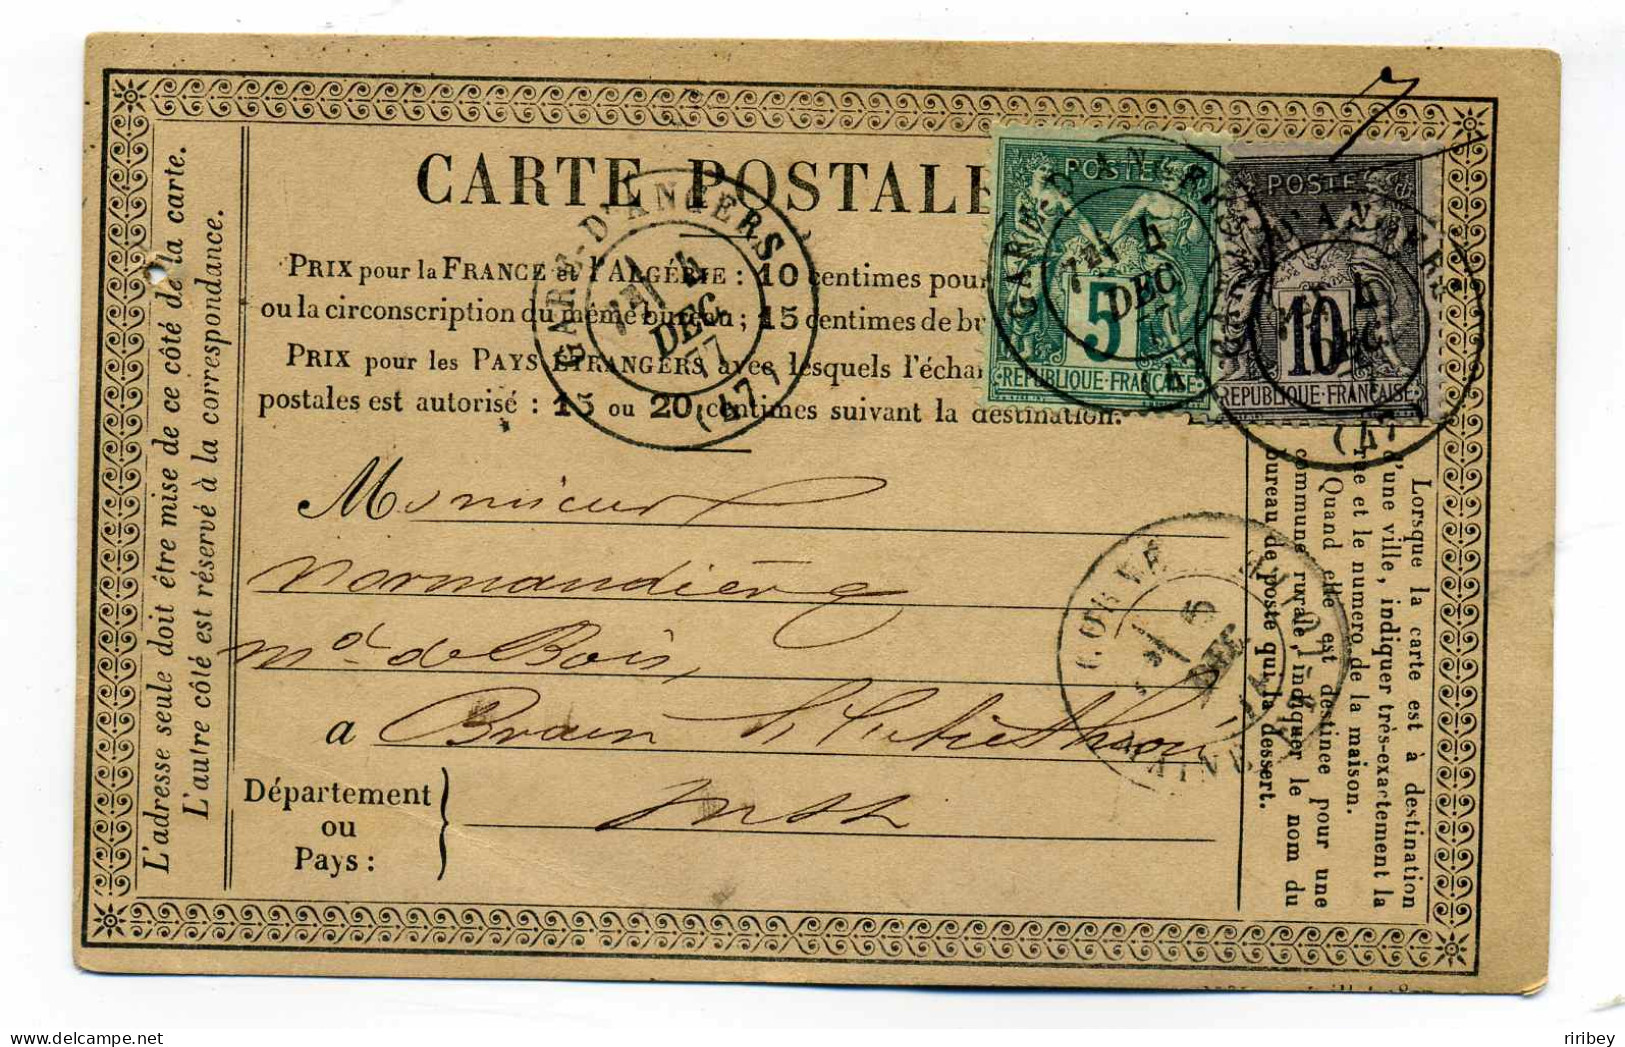 CARTE POSTALE
POSTES
5
REPUBLIQUE·FRANÇAISE
POSTES
10
REPUBLIQUE·FRANÇAISE
GARE-D'ANGERS
4
DEC
77
(47)
GARE-D'ANGERS
4
DEC
77
(47)
GARE-D'ANGERS
4
DEC
(47)
PRIX pour la FRANCE et l'ALGÉRIE : 10 centimes pour
ou la circonscription du même bureau ; 15 centimes de bu
PRIX pour les PAYS ÉTRANGERS avec lesquels l'échan
postales est autorisé : 15 ou 20 centimes suivant la destination.
Monsieur
Normandière
Md. de Bois,
à Brain
Département
ou
Pays :
5
DEC
L'adresse seule doit être mise de ce côté de la carte.
L'autre côté est réservé à la correspondance.
Lorsque la carte est à destination
d'une ville, indiquer très-exactement la
rue et le numéro de la maison.
Quand elle est destinée pour une
commune rurale, indiquer le nom du
bureau de poste qui la dessert.
ririBey